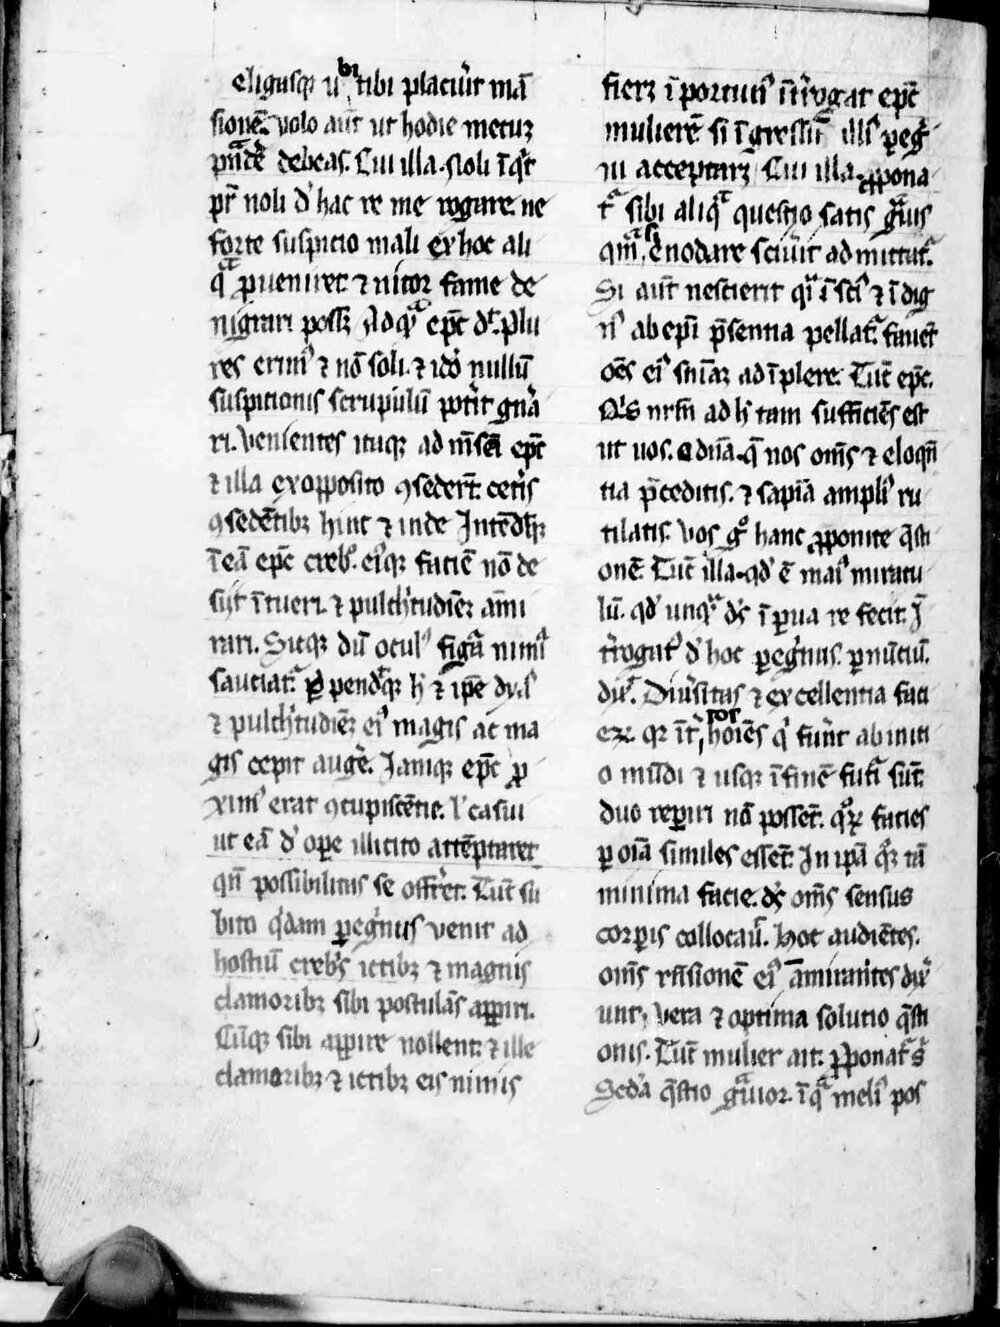 eligasq ubi tibi placuĩt mã
sionẽ. volo aũt ut hodie mecuȝ
pñdẽ debeas. Cui illa. Noli ĩqt
pr̃ noli d' hac re me rogare. ne
forte suspicio mali ex hoc ali
qͣ ꝓveniret ⁊ nitor fame de
nigrari possȝ. Ad qͣ epc̃ dt̃. plu
res erimꝰ ⁊ nõ soli. ⁊ idõ nullũ
suspitionis scrupulũ pot'it gña
ri. Venientes itaqȝ ad mẽsã epc̃
⁊ illa ex opposito ꝯsederũt. cet'is
ꝯsedẽtibȝ hinc ⁊ inde Intẽdẽsqȝ
ĩ eã epc̃ crebꝰ. eiꝰqȝ faciẽ nõ de
sijt ĩtueri. ⁊ pulch'tudiẽȝ ami
rari. Sicqȝ dũ oculꝰ figͣ nimiͣ
sauciatͣ. Perpendẽsqȝ h' ⁊ ip̃e dy.
⁊ pulch'tudiẽȝ eiꝰ magis ac ma
gis cepit auge'. Jamqȝ epc̃ ꝓ
ximꝰ erat ꝯcupiscẽtie. l' casui
ut eã d' ope illicito attẽptaret
qñ possibilitas se off'ret. Tũc su
bito qdam pegr'nus venit ad
hostiũ crebis ictibȝ ⁊ magnis
clamoribȝ sibi postulãs appiri.
Cũqȝ sibi appire nollent. ⁊ ille
clamoribȝ ⁊ ictibȝ eis nimis
fierȝ ĩportunꝰ ĩt'rogat epc̃
mulierẽ si ĩgressũ illiꝰ pegr'
ni acceptarȝ. Cui illa. ꝓpona
tͣ sibi aliqͣ questio satis gͣuis
qmͣ si enodare sciu'it admittatͣ.
Si aũt nescierit qͣ ĩsciꝰ ⁊ ĩdig
nꝰ ab epi p̃sentia pellatͣ. faue'ũt
oẽs eiꝰ sñiaȝ adĩplere. Tũc epc̃.
Q's nrm̃ ad h' tam sufficiẽs est
ut vos. o dña. q̃ nos om̃s ⁊ eloqñ
tia p̃ceditis. ⁊ sapĩa ampliꝰ ru
tilatis. Vos gͦ hanc ꝓponite q̃sti
onẽ. Tũc illa. qd' ẽ maiꝰ miracu
lũ. qd' unqͣ d's ĩ ꝑva re fecit. Ĩ
t'rogatꝰ d' hoc pegr'nus. ꝑ nũciũ.
dixͭ. Diu'sitas ⁊ excellentia faci
eȝ. qr ĩt' tot hoĩes q' fu'nt ab initi
o mũdi ⁊ usqȝ ĩ finẽ futi' sũt.
duo reperiri nõ possẽt. qͦȝ facies
ꝑ oĩa similes essẽt. In ip̃a qͦȝ tã
minima facie. d's om̃s sensus
corꝑis collocau'. Hoc audiẽtes.
om̃s rñsionẽ eiꝰ amirantes dix'
unt. vera ⁊ optima solutio q̃sti
onis. Tũc mulier ait. ꝓponatͣ s'
Sed'a q̃stio gͣuior. ĩ qͣ meliꝰ pos